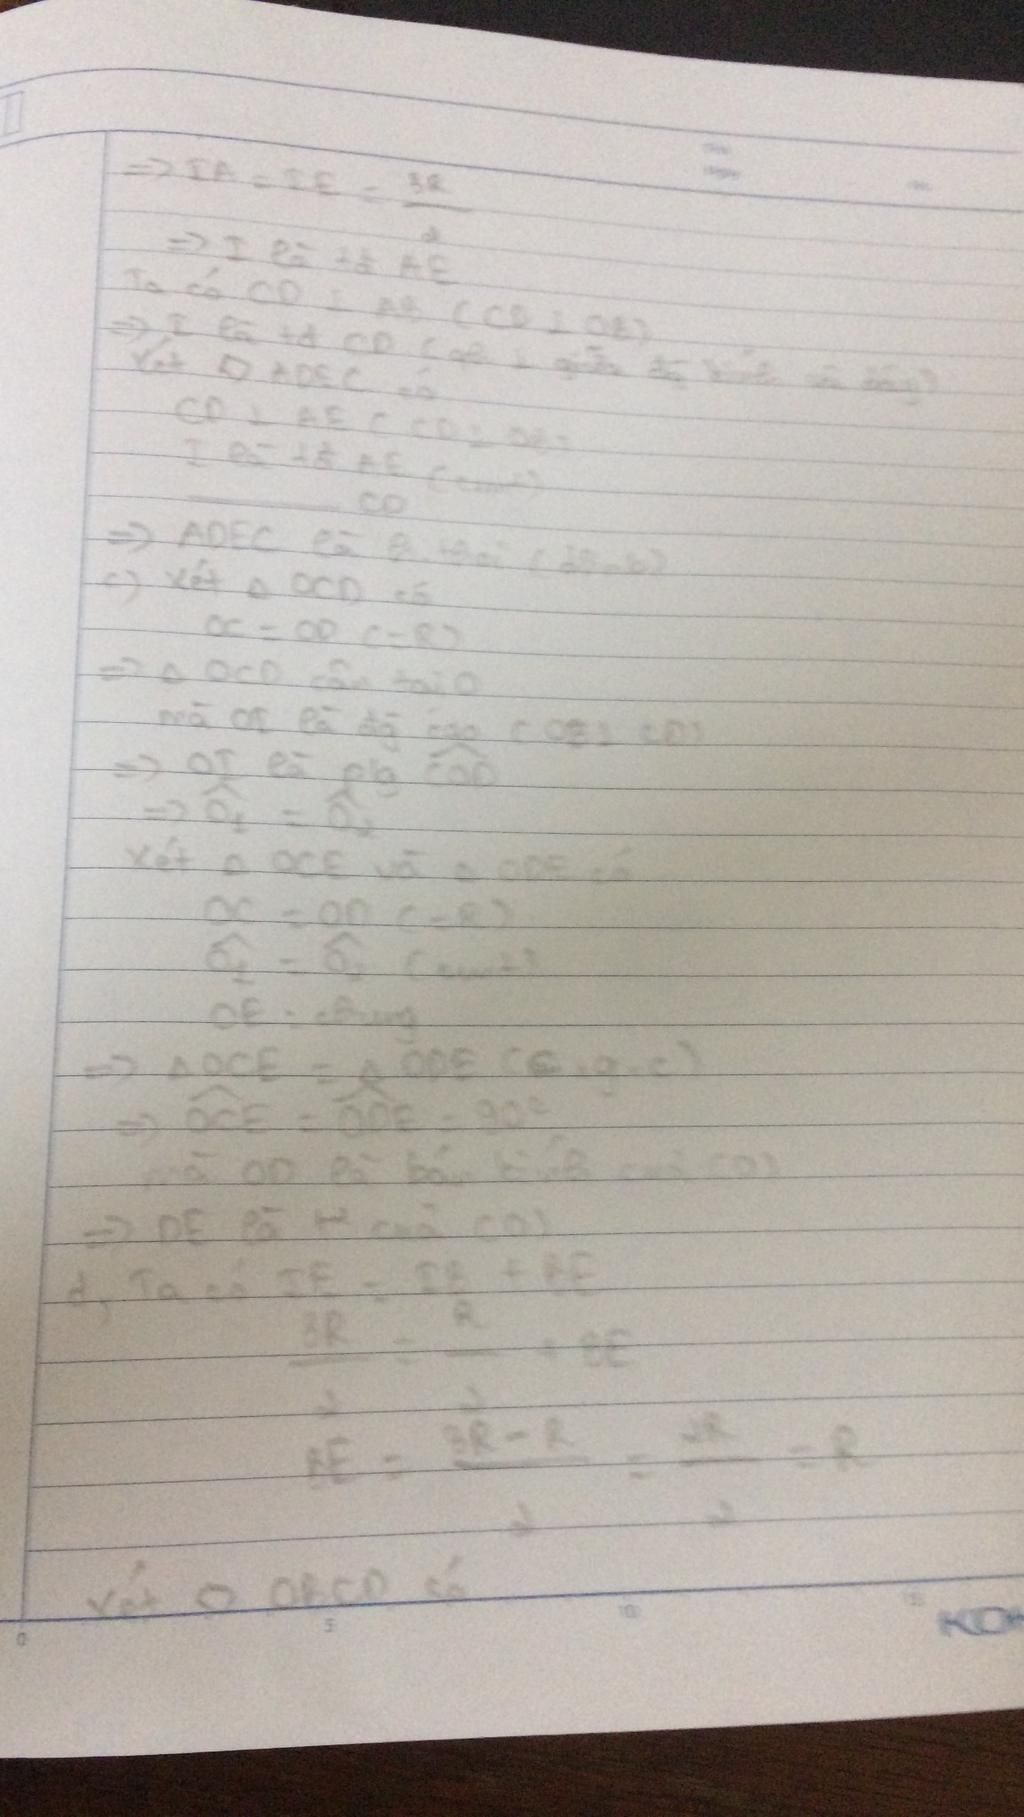 => IA = IE = 3R/2
=> I là tđ AE
Ta có CD ⊥ AB (CD ⊥ OB)
=> I là tđ CD (qh ⊥ giữa đg kính và dây)
Xét □ ADEC có
CD ⊥ AE (CD ⊥ OB)
I là tđ AE (cmt)
CD
=> ADEC là h thoi (dhnb)
c) Xét Δ OCD có
OC = OD (=R)
=> Δ OCD cân tại O
mà OI là đg cao (OB ⊥ CD)
=> OI là p/g COD
=> O1 = O2
Xét Δ OCE và Δ ODE có
OC = OD (=R)
O1 = O2 (cmt)
OE : chung
=> Δ OCE = Δ ODE (c.g.c)
=> OCE = ODE = 90°
mà OD là bán kính của (O)
=> DE là tt của (O)
d, Ta có IE = IB + BE
3R/2 = R/2 + BE
BE = 3R - R/2 = 2R/2 = R
Xét □ OBCD có
0 5 10 15
KO